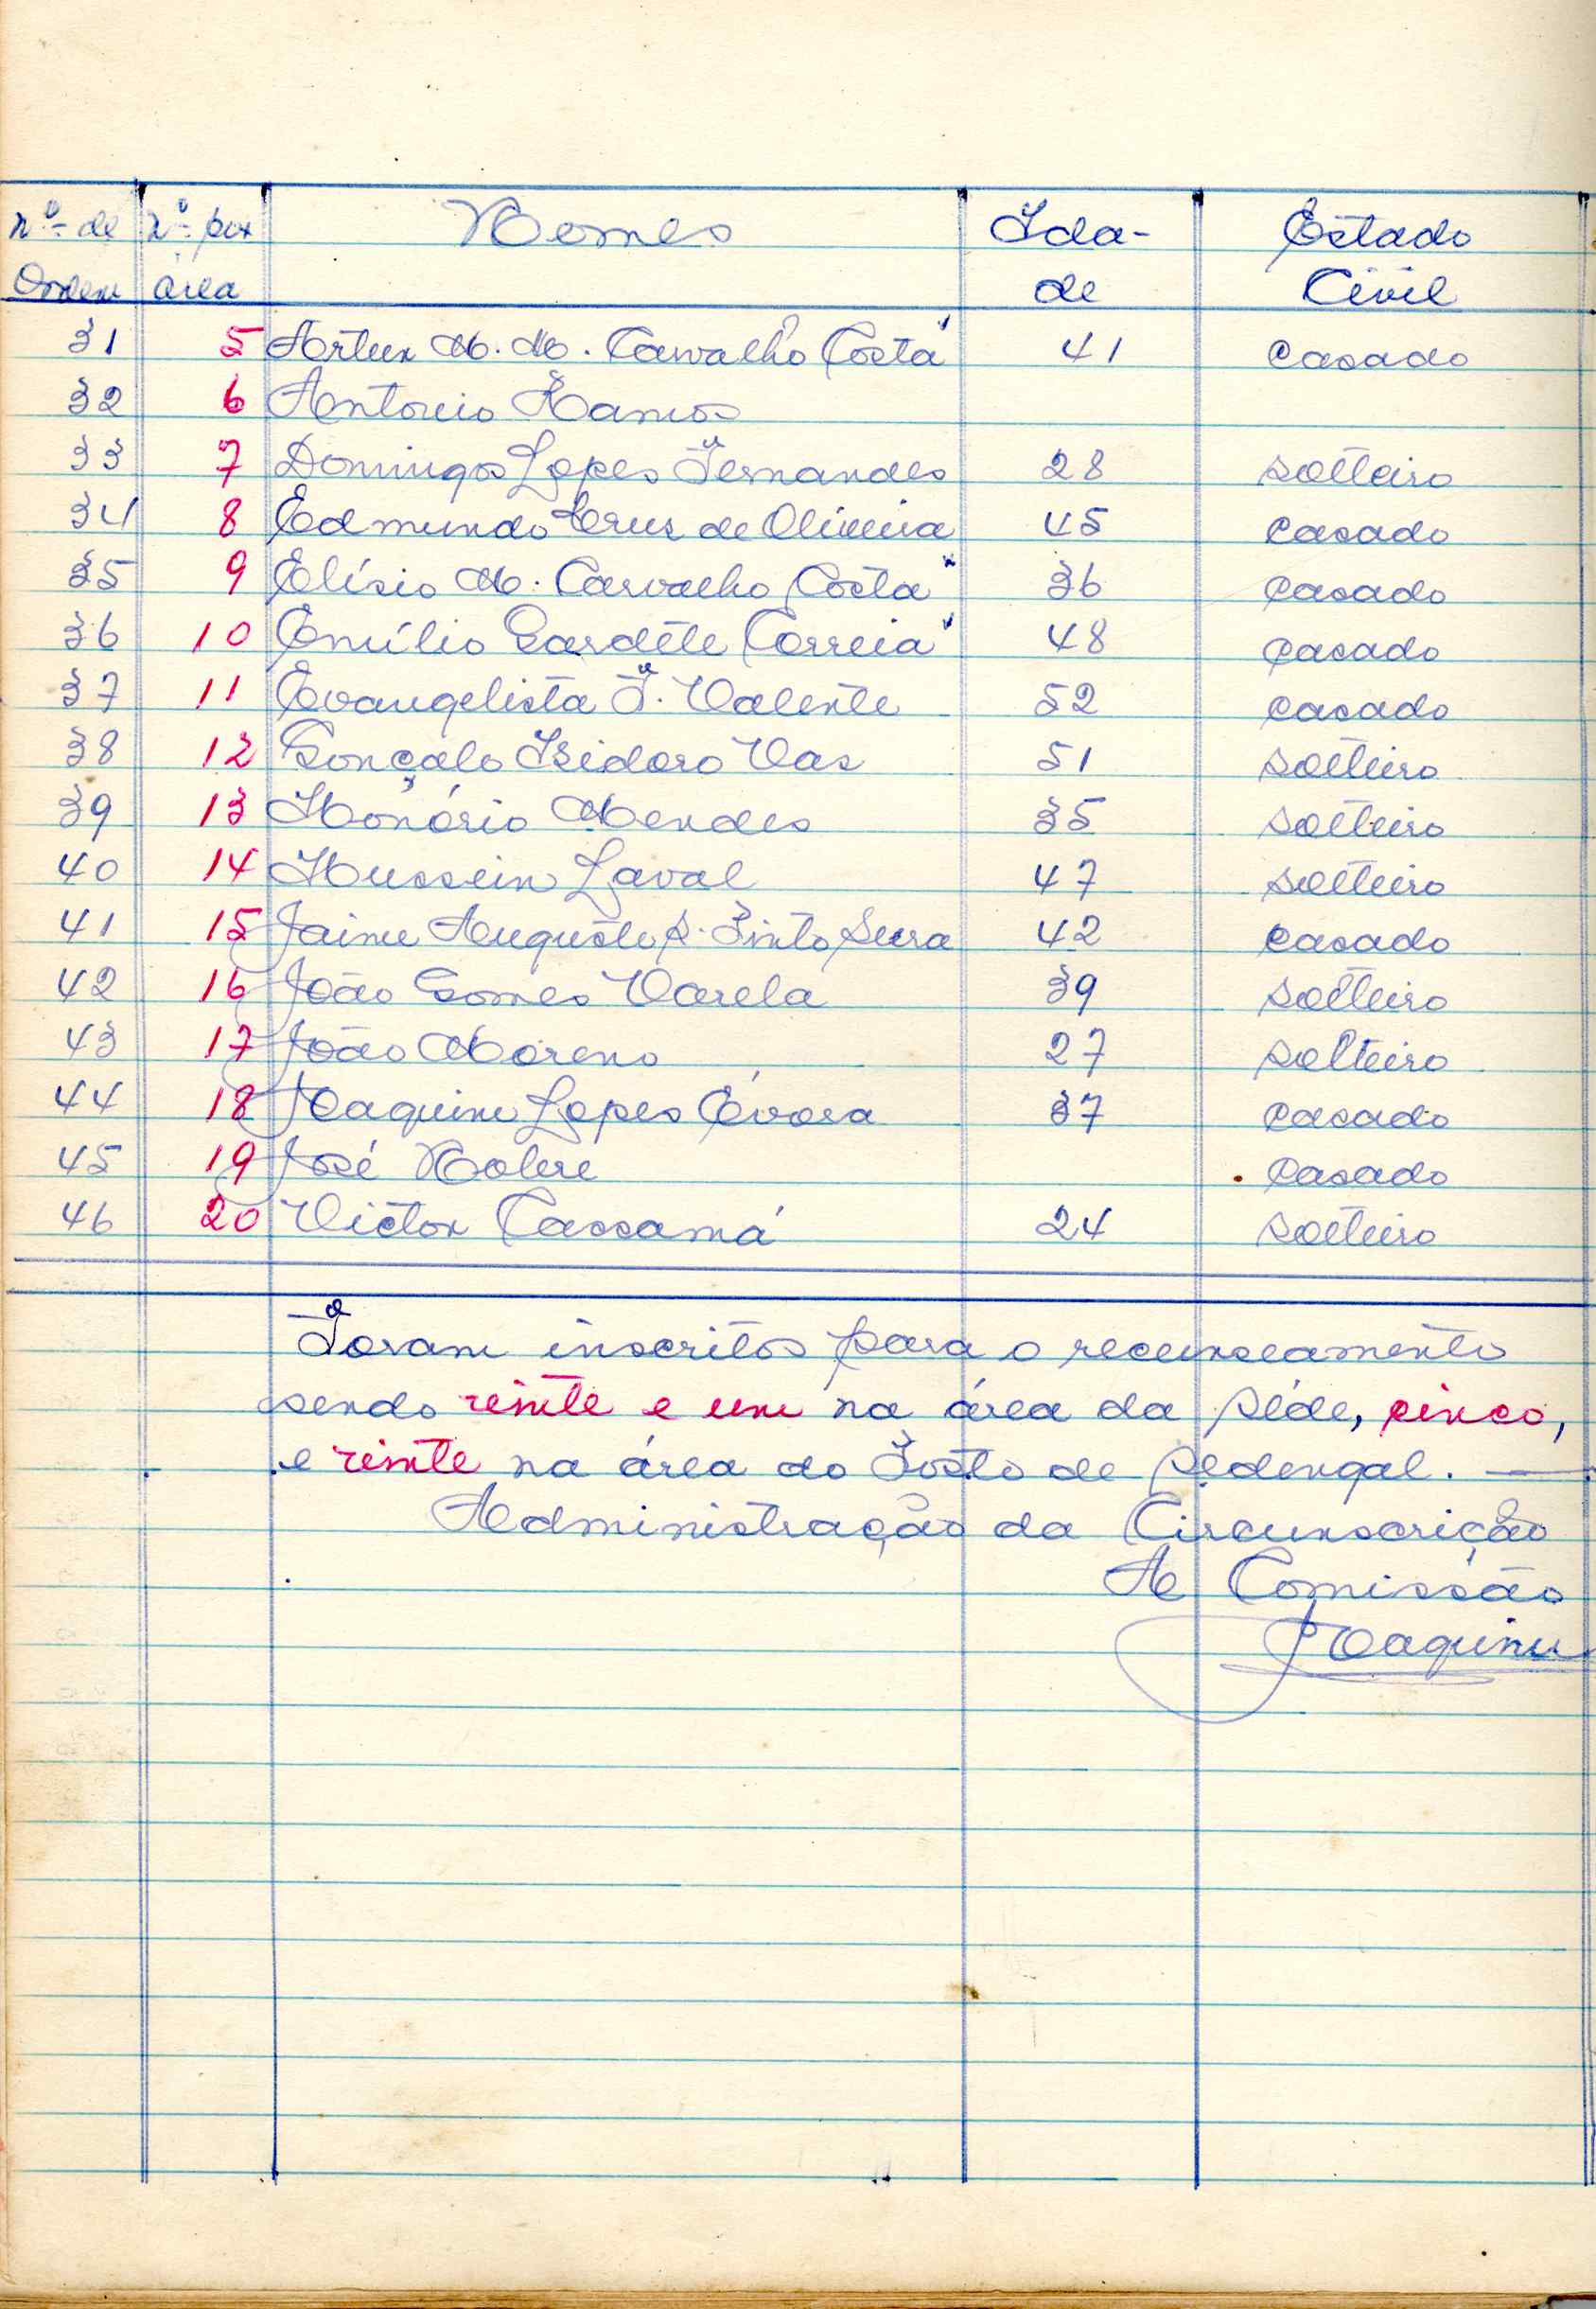 Nº de Ordem Nº por área Nomes Idade Estado Civil
31 5 Artur M. M. Carvalho Costa 41 casado
32 6 Antonio Ramos
33 7 Domingos Lopes Fernandes 28 solteiro
34 8 Edmundo Cruz de Oliveira 45 casado
35 9 Elísio M. Carvalho Costa 36 casado
36 10 Emílio Gardéte Correia 48 casado
37 11 Evangelista F. Valente 52 casado
38 12 Gonçalo Izidoro Vaz 51 solteiro
39 13 Honório Mendes 35 solteiro
40 14 Hussein Laval 47 solteiro
41 15 Jaime Augusto S. Pinto Serra 42 casado
42 16 João Gomes Varela 39 solteiro
43 17 João Moreno 27 solteiro
44 18 Joaquim Lopes Évora 37 casado
45 19 José casado
46 20 Victor Cassamá 24 solteiro
Foram inscritos para o recenseamento
sendo vinte e um na área da séde, cinco,
e vinte na área do Posto de Sedengal.
Administração da Circunscrição
A Comissão
Joaquim